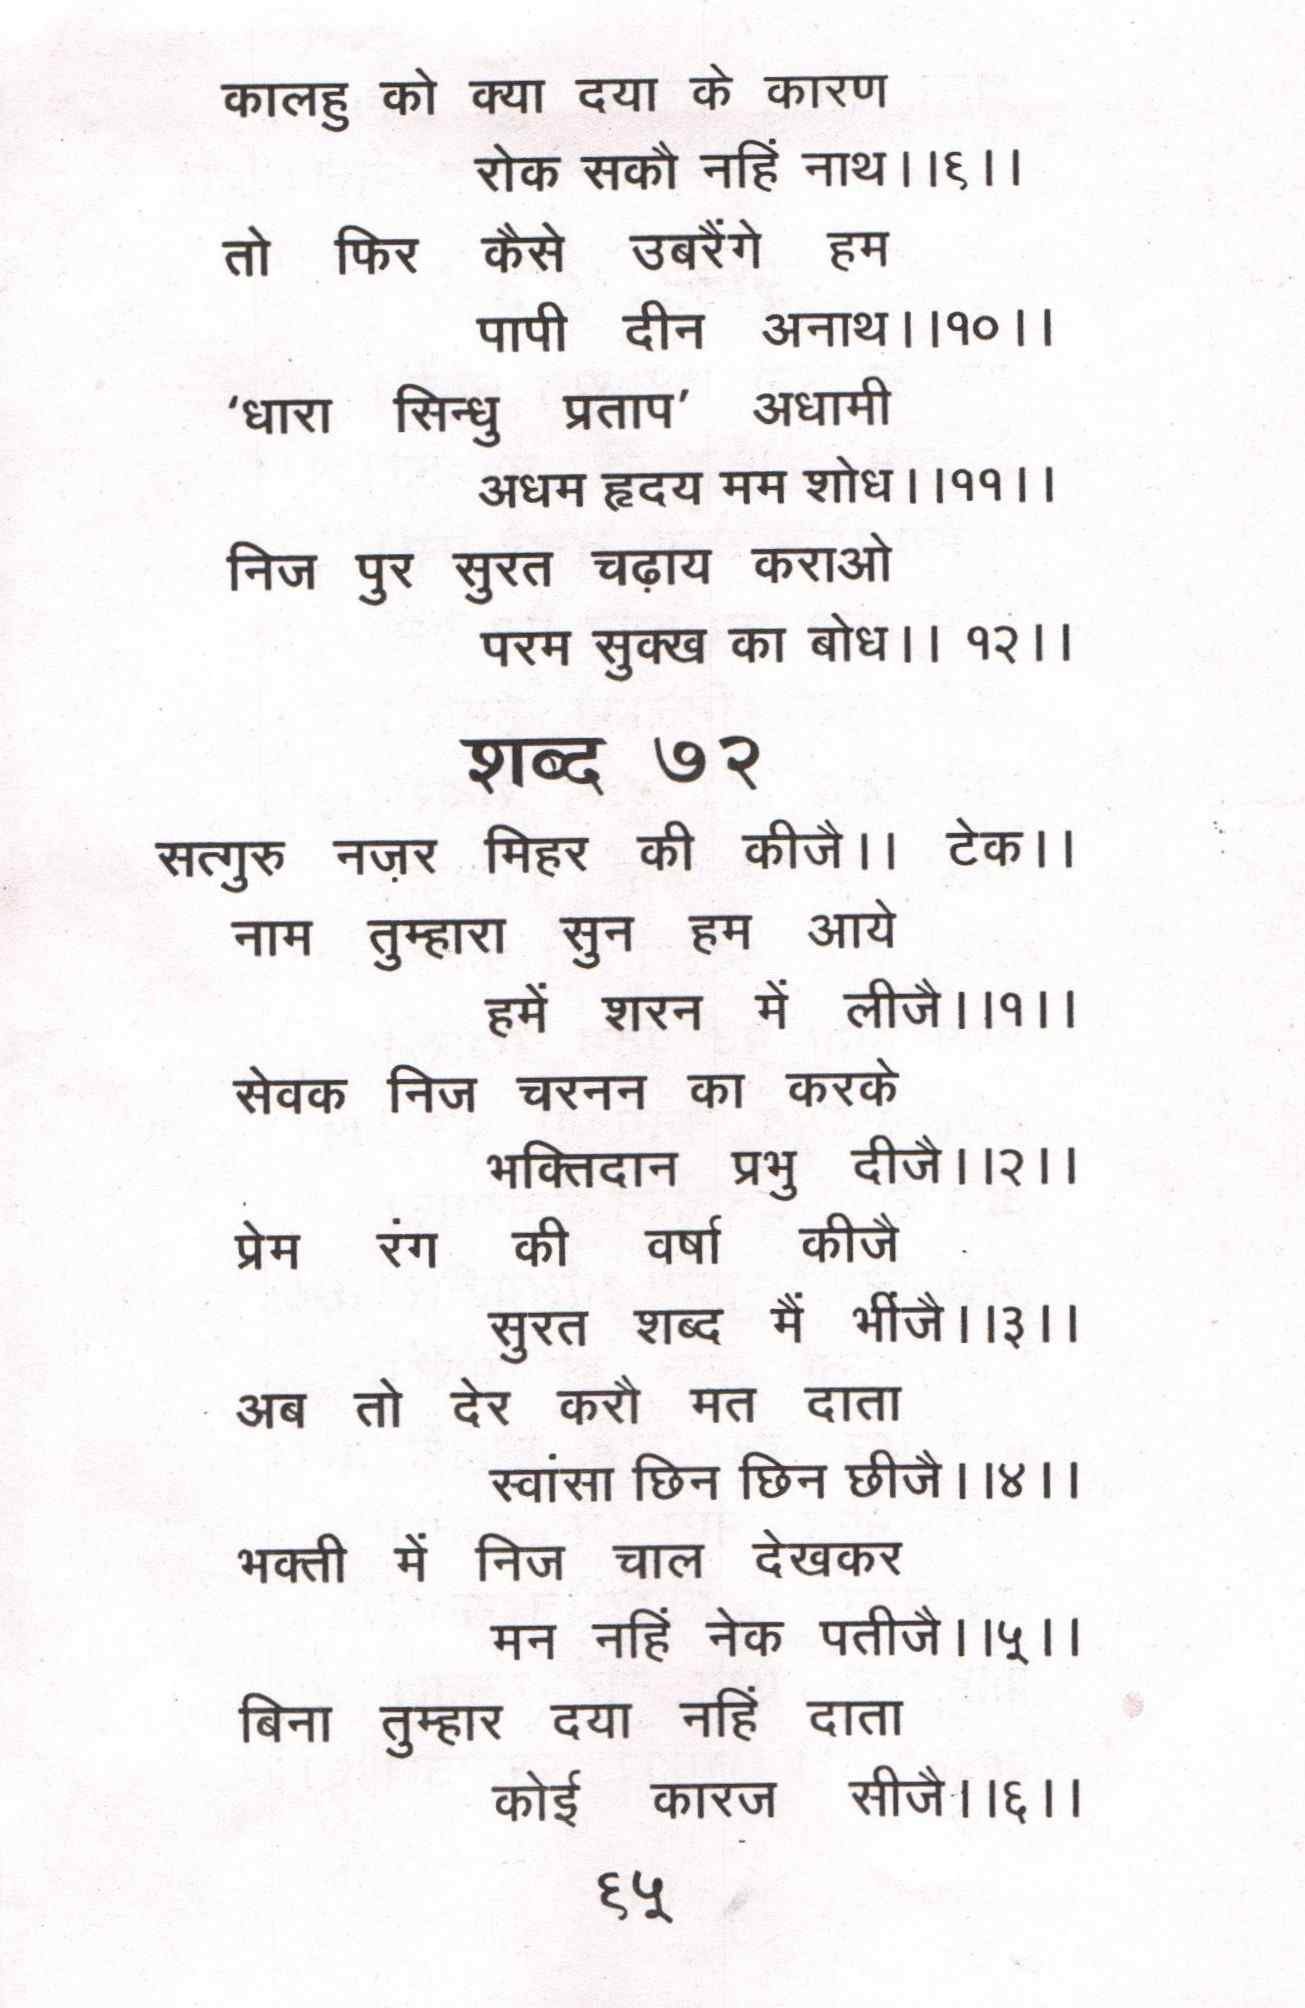 कालहु को क्या दया के कारण
रोक सकौ नहिं नाथ।।९।।
तो फिर कैसे उबरैंगे हम
पापी दीन अनाथ।।१०।।
‘धारा सिन्धु प्रताप’ अधामी
अधम हृदय मम शोध।।११।।
निज पुर सुरत चढ़ाय कराओ
परम सुक्ख का बोध।। १२।।
शब्द ७२
सत्गुरु नज़र मिहर की कीजै।। टेक।।
नाम तुम्हारा सुन हम आये
हमें शरन में लीजै।।१।।
सेवक निज चरनन का करके
भक्तिदान प्रभु दीजै।।२।।
प्रेम रंग की वर्षा कीजै
सुरत शब्द मैं भींजै।।३।।
अब तो देर करौ मत दाता
स्वांसा छिन छिन छीजै।।४।।
भक्ती में निज चाल देखकर
मन नहिं नेक पतीजै।।५।।
बिना तुम्हार दया नहिं दाता
कोई कारज सीजै।।६।।
९५